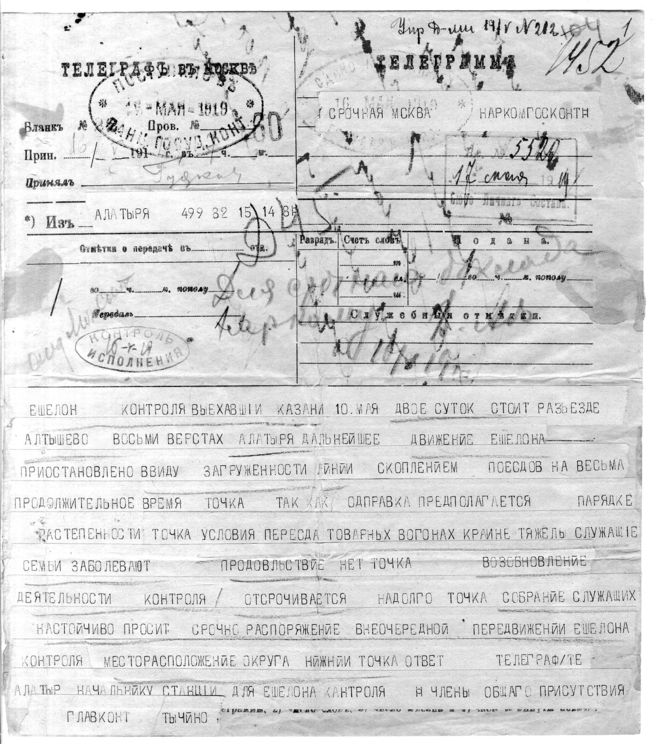 Упр Д-ми 19/V N 202
1
1452
ТЕЛЕГРАФЪ ВЪ МОСКВѢ
ТЕЛЕГРАММА
19 - МАЯ - 1919
СРОЧНАЯ МСКВА НАРКОМГОСКОНТЯ
Бланкъ № Пров.
Прин. 191 въ ч. м.
№ 5520
Принялъ
17 мая 1919
*) Изъ АЛАТЫРЯ 499 82 15 14 8
Отмѣтка о передачѣ въ отд.
Разрядъ. Счетъ словъ. Подана.
го ч. м. пополу
го ч. м. пополу
Для срочнаго доклада
Передалъ
Служебныя отмѣтки.
КОНТРОЛЬ
ИСПОЛНЕНИЯ
ЕШЕЛОН КОНТРОЛЯ ВЫЕХАВШІИ КАЗАНИ 10.МАЯ ДВОЕ СУТОК СТОИТ РАЗЬЕЗДЕ
АЛТЫШЕВО ВОСЬМИ ВЕРСТАХ АЛАТЫРЯ ДАЛЬНЕЙШЕЕ ДВИЖЕНИЕ ЕШЕЛОНА
ПРИОСТАНОВЛЕНО ВВИДУ ЗАГРУЖЕННОСТИ ЛИНІИ СКОПЛЕНИЕМ ПОЕСДОВ НА ВЕСЬМА
ПРОДОЛЖИТЕЛЬНОЕ ВРЕМЯ ТОЧКА ТАК КАК ОДПРАВКА ПРЕДПОЛАГАЕТСЯ ПАРЯДКЕ
РАСТЕПЕННОСТИ ТОЧКА УСЛОВИЯ ПЕРЕСДА ТОВАРНЫХ ВОГОНАХ КРАИНЕ ТЯЖЕЛЬ СЛУЖАЩІЕ
СЕМЬИ ЗАБОЛЕВАЮТ ПРОДОВЛЬСТВИЕ НЕТ ТОЧКА ВОЗОБНОВЛЕНИЕ
ДЕЯТЕЛЬНОСТИ КОНТРОЛЯ / ОТСРОЧИВАЕТСЯ НАДОЛГО ТОЧКА СОБРАНИЕ СЛУЖАЩИХ
НАСТОЙЧИВО ПРОСИТ СРОЧНО РАСПОРЯЖЕНИЕ ВНЕОЧЕРЕДНОЙ ПЕРЕДВИЖЕНІИ ЕШЕЛОНА
КОНТРОЛЯ МЕСТОРАСПОЛОЖЕНИЕ ОКРУГА НИЖНІИ ТОЧКА ОТВЕТ ТЕЛЕГРАФ/ТЕ
АЛАТЫР НАЧАЛЬНИКУ СТАНЦІИ ДЛЯ ЕШЕЛОНА КАНТРОЛЯ Я ЧЛЕНЫ ОБЩАГО ПРИСУТСТВИЯ
ГЛАВКОНТ ТЫЧИНО